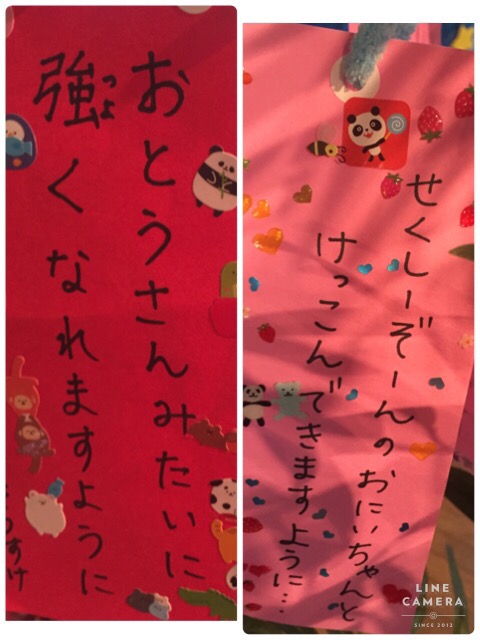 おとうさんみたいに
強くなれますように
つよ
せくしーぞーんのおにいちゃんと
けっこんできますように…
LINE
CAMERA
SINCE 2012